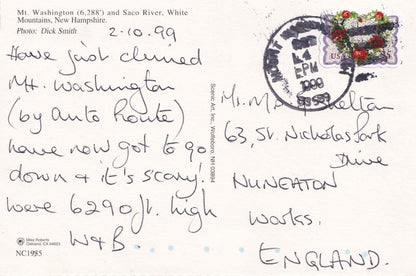 Mt. Washington (6,288') and Saco River, White
Mountains, New Hampshire.
Photo: Dick Smith
2-10.99
Have just climed
Mt. Washington
(by Auto Route)
have now got to go
down & it's scary!
were 6290 ft. high
W&B
Mike Roberts
Oakland, CA 94623
NC1985
Scenic Art, Inc., Wolfeboro, NH 03894
MOUNT
PM
1999
USA
Mr. M
63, St. Nicholas Park
Drive
NUNEATON
Warks.
ENGLAND.